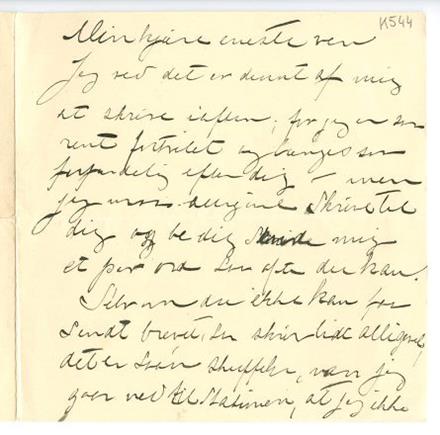 K544
Min kjære eneste ven
Jeg ved det er dumt af mig
at skrive iaften, for jeg er saa
rent fortvilet og længes saa
forfærdelig efter dig – men
jeg maa alligevel skrive til
dig og be dig sende mig
et par ord saa ofte du kan.
Selv om du ikke kan faa
sendt brevet, saa skriv lidt alligevel,
det er saan skuffelse, naar jeg
gaar ned til Stationen, at jeg ikke